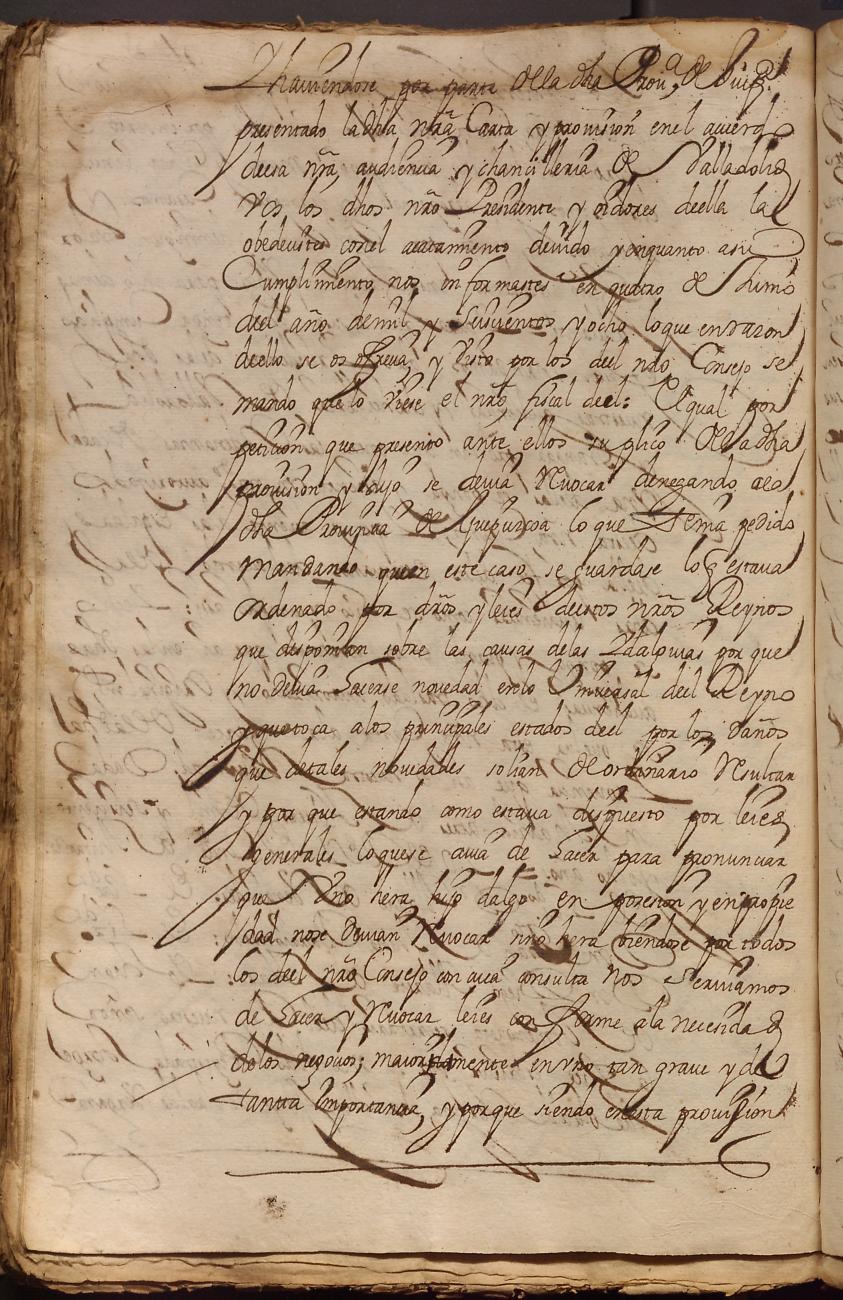 Yhaviendose por parte dela dha Prouª de Guipᶻ
presentado la dha nrã Carta y prouision enel acuerdo
desa nrã audiencia y chancilleria de Valladolid
Vos los dhos nrõ Presidente y oidores deella la
obedecistes con el acatamiento devido y en quanto a su
Cumplimiento nos informastes en quatro de Iunio
del año de mil y seiscientos y ocho lo que en razon
de ello se os ofrecia y visto por los del nrõ Consejo se
mando que lo viese el nrõ fiscal deel: El qual por
peticion que presento ante ellos suplico dela dha
prouision y dijo se devia Revocar denegando ala
dha Prouincia de Guipuzcoa lo que tenia pedido
Mandando que en este caso se guardase lo q̃ estava
ordenado por drõs y leies destos nrõs Reynos
que disponian sobre las causas delas Ydalguias por que
no devia hacerse novedad en lo Vniversal del Reyno
y que toca a los principales estados deel por los daños
que de tales novedades solian de ordinario Resultar
y por que estando como estava dispuesto por leies
generales lo que se avia de hacer para pronunciar
que Vno hera hijo dalgo en posesion y en propie
dad no se devian Revocar sino hera viendose por todos
los deel nrõ Consejo con cuia consulta nos serviamos
de hacer y Revocar leies conforme a la necesidad
de los negocios; maiormente en vno tan grave y de
tanta Importancia, y porque siendo en esta prouision